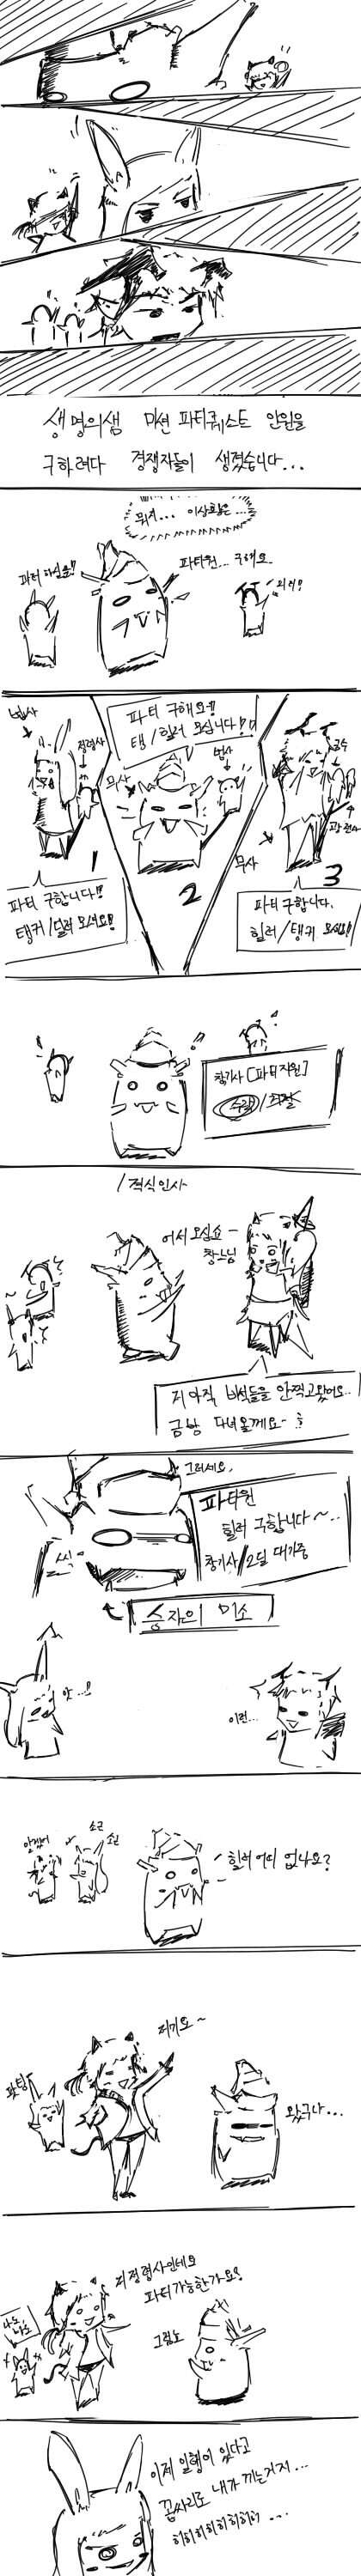 생명의샘 미션 파티퀘스트 인원을
구하려다 경쟁자들이 생겼습니다...
뭐지... 이상황은...
파티하실분!!
파티원... 구해요
법사
정령사
파티 구합니다!!
탱커/딜러 오세요!!
1
파티 구해요!!
탱/힐러 오십니다!!
무사
법사
2
궁수
무사
3
파티구합니다.
힐러/탱커 오세요!!
창기사 [파티지원]
수락/거절
/격식인사
어서 오십쇼~
창느님
저 아직 비석들을 안찍고왔어요..
금방 다녀올께요~
그러세요.
파티원
힐러 구합니다~..
창기사/2딜 대기중
씨익
승자의 미소
앗...!!
이런...
소근
소근
힐러 어디 없나요?
저기요~
파팅
왔구나...
저정령사인데요
파티가능한가요?
나도,
나도
그럼요
이제 일행이 있다고
꼽싸리로 내가 끼는거지...
히히히히히히히...